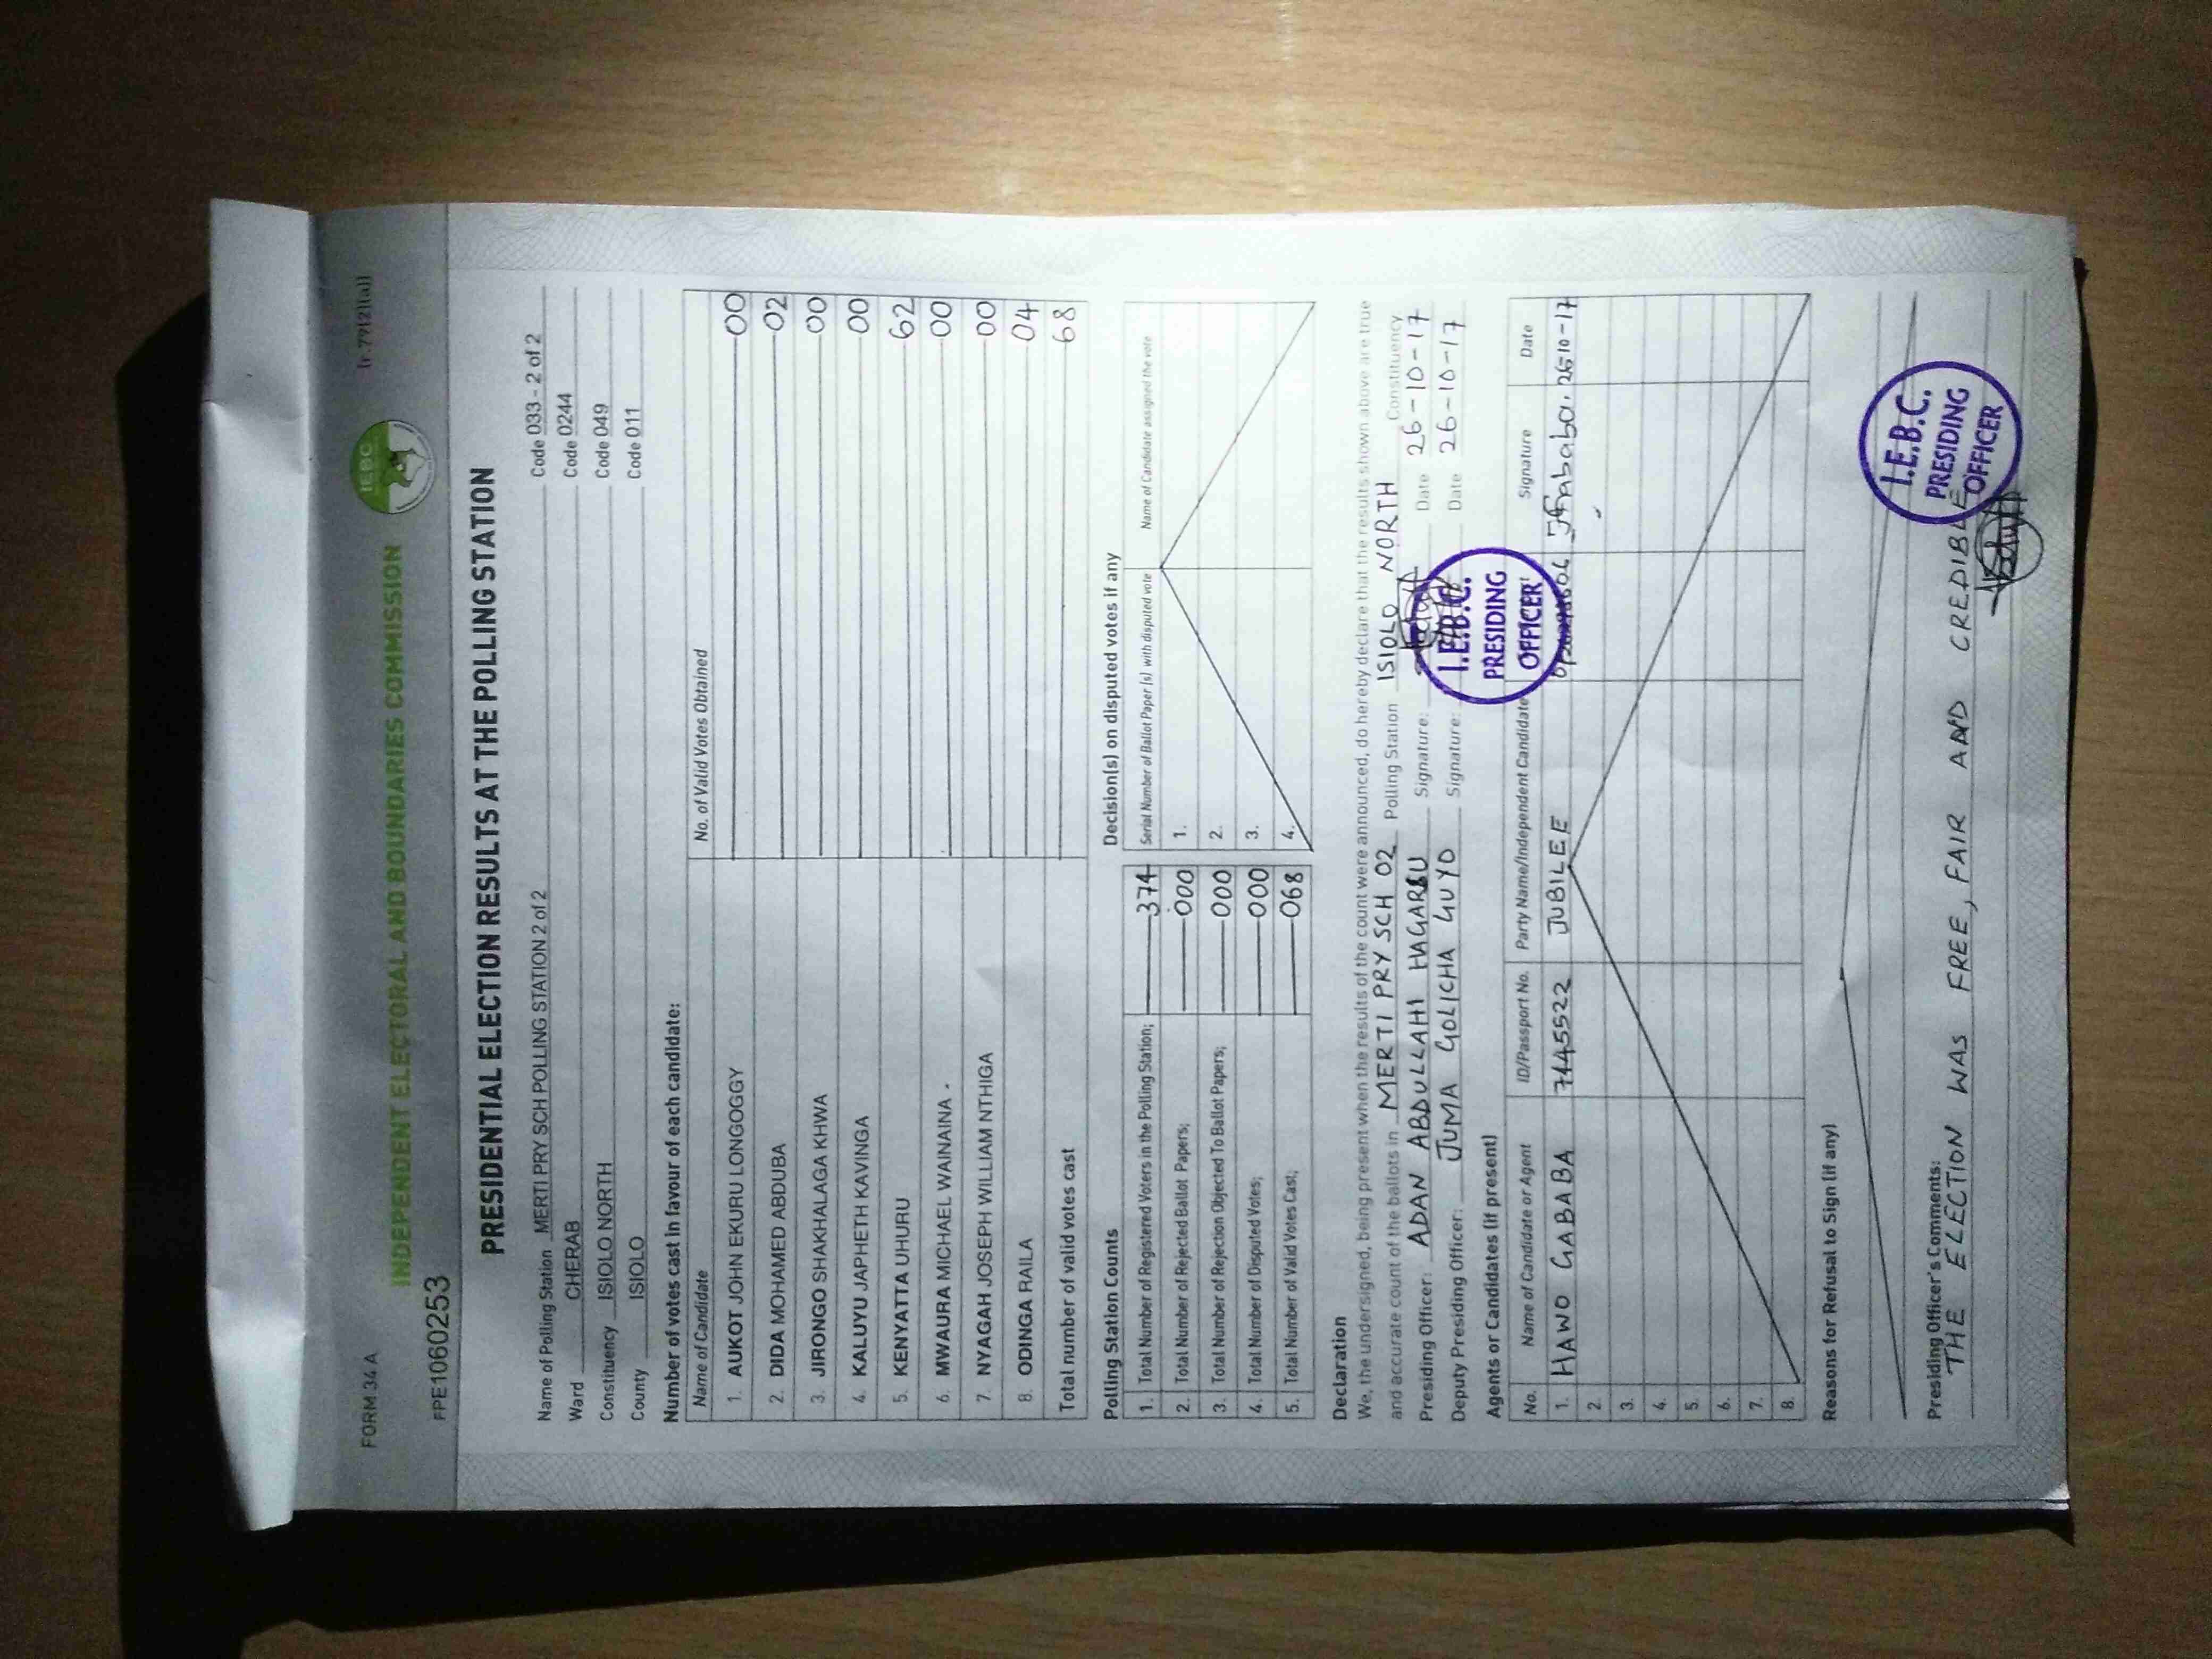 FORM 34 A
(r.79(2)(a))
IEBC
INDEPENDENT ELECTORAL AND BOUNDARIES COMMISSION
FPE1060253
PRESIDENTIAL ELECTION RESULTS AT THE POLLING STATION
Name of Polling Station MERTI PRY SCH POLLING STATION 2 of 2 Code 033 - 2 of 2
Ward CHERAB Code 0244
Constituency ISIOLO NORTH Code 049
County ISIOLO Code 011
Number of votes cast in favour of each candidate:
Name of Candidate No. of Valid Votes Obtained
1. AUKOT JOHN EKURU LONGOGGY 00
2. DIDA MOHAMED ABDUBA 02
3. JIRONGO SHAKHALAGA KHWA 00
4. KALUYU JAPHETH KAVINGA 00
5. KENYATTA UHURU 62
6. MWAURA MICHAEL WAINAINA 00
7. NYAGAH JOSEPH WILLIAM NTHIGA 00
8. ODINGA RAILA 04
Total number of valid votes cast 68
Polling Station Counts
1. Total Number of Registered Voters in the Polling Station; 374
2. Total Number of Rejected Ballot Papers; 000
3. Total Number of Rejection Objected To Ballot Papers; 000
4. Total Number of Disputed Votes; 000
5. Total Number of Valid Votes Cast; 068
Decision(s) on disputed votes if any
Serial Number of Ballot Paper (s) with disputed vote Name of Candidate assigned the vote
1.
2.
3.
4.
Declaration
We, the undersigned, being present when the results of the count were announced, do hereby declare that the results shown above are true
and accurate count of the ballots in MERTI PRY SCH 02 Polling Station ISIOLO NORTH Constituency
Presiding Officer: ADAN ABDULLAHI Signature: Date 26-10-17
Deputy Presiding Officer: JUMA GOLICHA GUYO Signature: Date 26-10-17
I.E.B.C.
PRESIDING
OFFICER
Agents or Candidates (if present)
No. Name of Candidate or Agent ID/Passport No. Party Name/Independent Candidate Signature Date
1. HAWO GABABA 7445522 JUBILEE 26 10-17
2.
3.
4.
5.
6.
7.
8.
Reasons for Refusal to Sign (if any)
Presiding Officer's Comments:
THE ELECTION WAS FREE, FAIR AND CREDIBLE
I.E.B.C.
PRESIDING
OFFICER